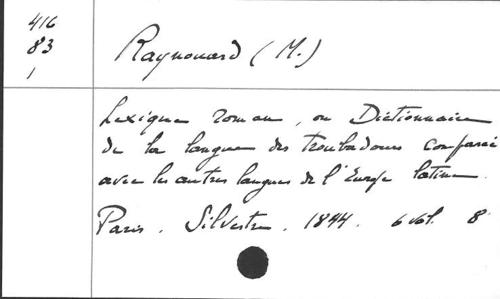 416
83
1
Raynouard (M.)
Lexique roman, ou Dictionnaire
de la langue des troubadours comparée
avec les autres langues de l'Europe latine.
Paris. Silvestre. 1844. 6 vol. 8°